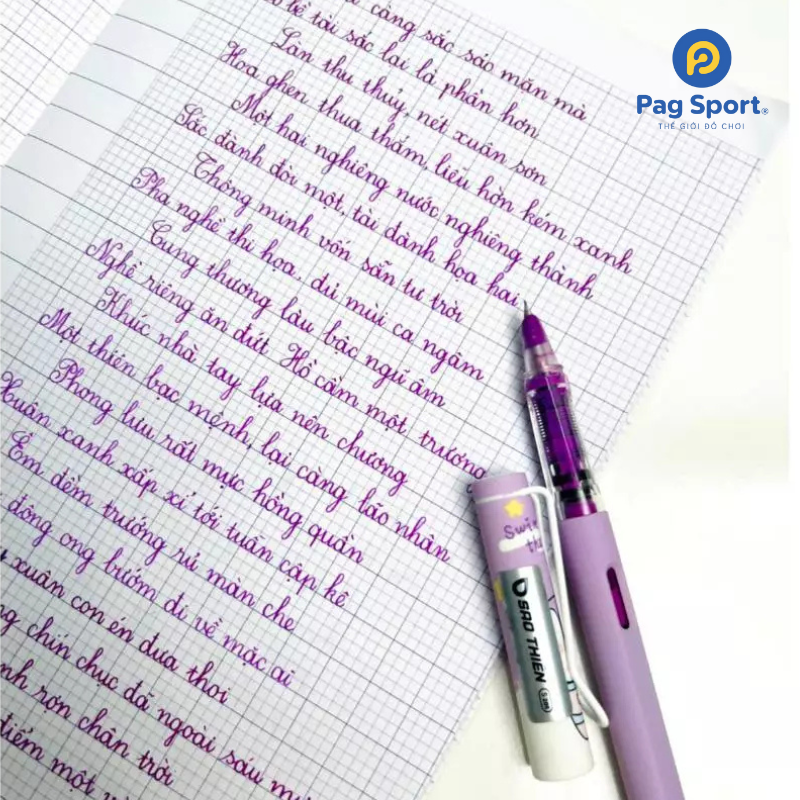 càng sắc sảo mặn mà
bề tài sắc lại là phần hơn
Làn thu thủy, nét xuân sơn
Hoa ghen thua thắm, liễu hờn kém xanh
Một hai nghiêng nước nghiêng thành
Sắc đành đòi một, tài đành họa hai
Thông minh vốn sẵn tư trời
Pha nghề thi họa, đủ mùi ca ngâm
Cung thương lầu bậc ngũ âm
Nghề riêng ăn đứt Hồ cầm một trương
Khúc nhà tay lựa nên chương
Một thiên bạc mệnh, lại càng não nhân
Phong lưu rất mực hồng quần
Xuân xanh xấp xỉ tới tuần cập kê
Êm đềm trướng rủ màn che
đông ong bướm đi về mặc ai
xuân con én đưa thoi
chín chục đã ngoài sáu
rợn chân trời
điểm một
Pag Sport®
THẾ GIỚI ĐỒ CHƠI
SAO THIEN